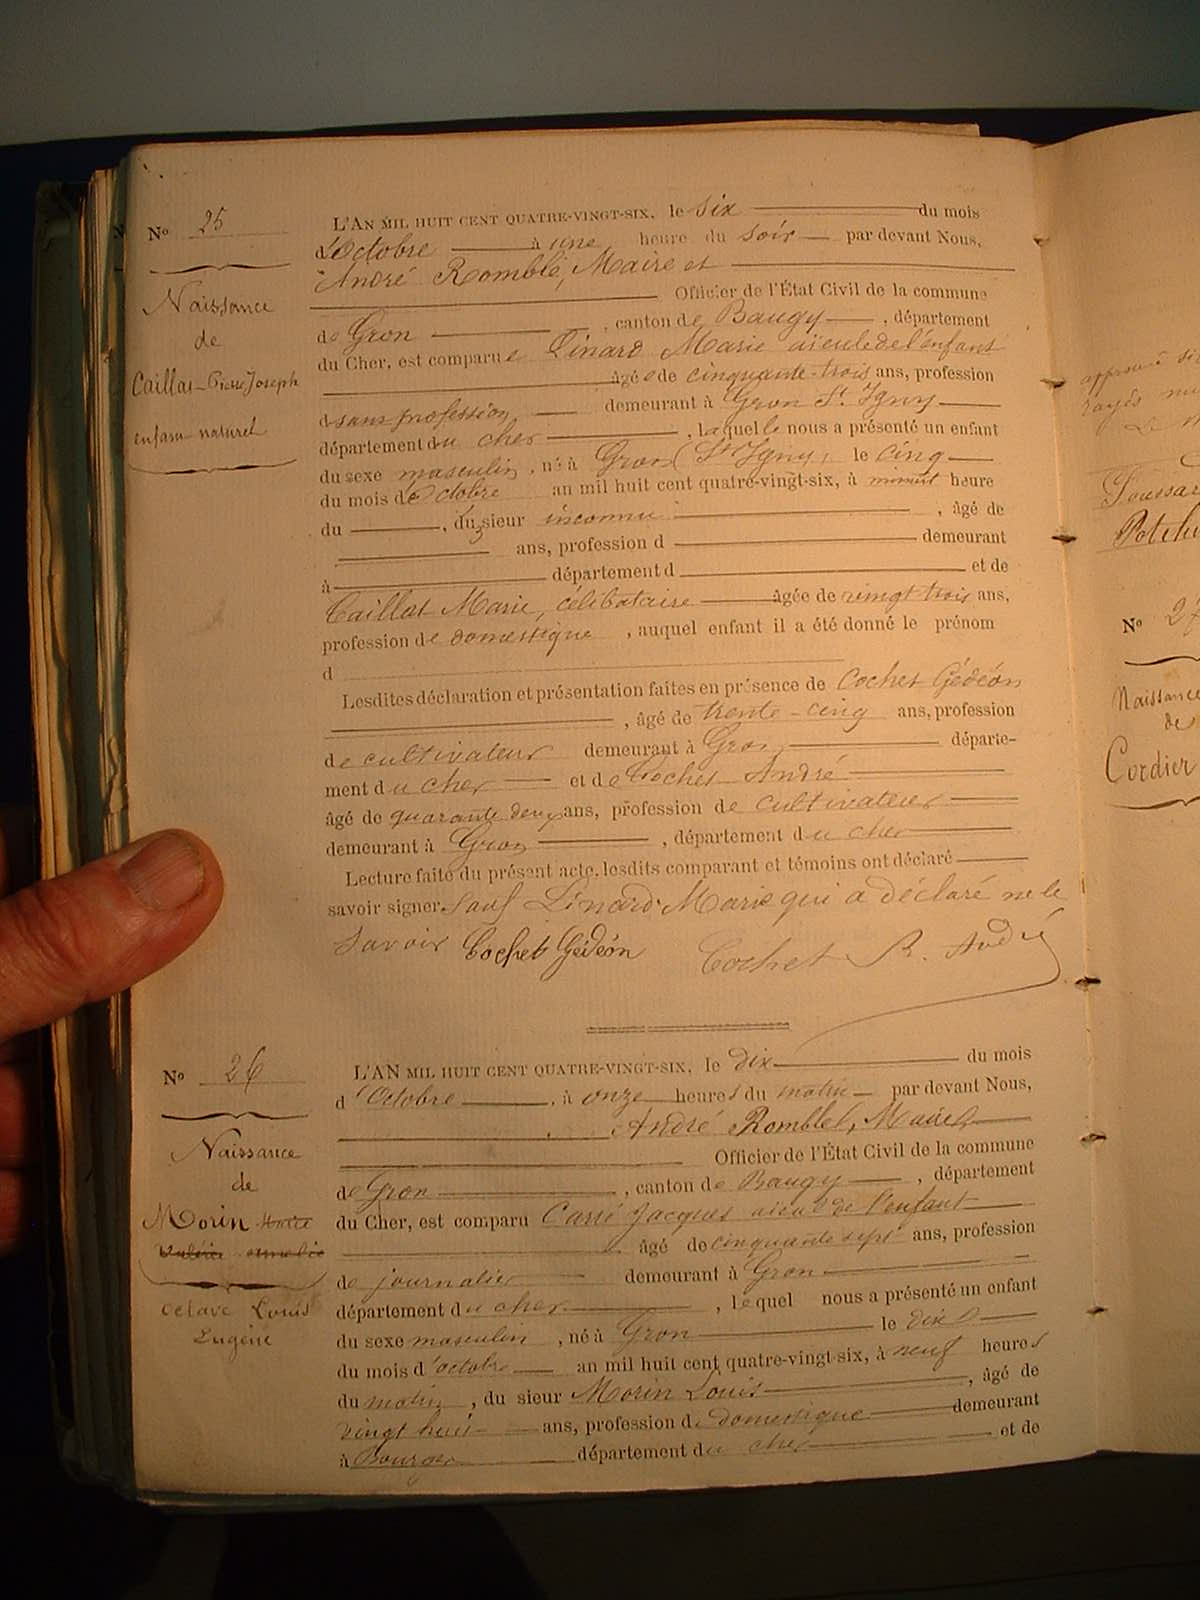 N° 25
Naissance
de
Caillat Pierre Joseph
enfant naturel
L'AN MIL HUIT CENT QUATRE-VINGT-SIX, le six du mois
d'Octobre à une heure du soir par devant Nous,
André Romblé, Maire et
Officier de l'État Civil de la commune
de Gron, canton de Baugy, département
du Cher, est comparue Linard Marie aieule de l'enfant
âgée de cinquante-trois ans, profession
d sans profession, demeurant à Gron St. Igny
département du cher, laquelle nous a présenté un enfant
du sexe masculin, né à Gron (St Igny) le cinq
du mois d'Octobre an mil huit cent quatre-vingt-six, à minuit heure
du, du sieur inconnu, âgé de
ans, profession d demeurant
à département d et de
Caillat Marie, célibataire âgée de vingt trois ans,
profession de domestique, auquel enfant il a été donné le prénom
d
Lesdites déclaration et présentation faites en présence de Cochet Gédéon
, âgé de trente-cinq ans, profession
de cultivateur demeurant à Gron départe-
ment du cher et de Cochet André
âgé de quarante deux ans, profession de cultivateur
demeurant à Gron, département du cher
Lecture faite du présent acte, lesdits comparant et témoins ont déclaré
savoir signer sauf Linard Marie qui a déclaré ne le
savoir Cochet Gédéon Cochet R. André
N° 26
Naissance
de
Morin
Octave Louis
Eugène
L'AN MIL HUIT CENT QUATRE-VINGT-SIX, le dix du mois
d'Octobre, à onze heures du matin par devant Nous,
André Romblet, Maire
Officier de l'État Civil de la commune
de Gron, canton de Baugy, département
du Cher, est comparu Carré Jacques aieul de l'enfant
âgé de cinquante sept ans, profession
de journalier demeurant à Gron
département du cher, lequel nous a présenté un enfant
du sexe masculin, né à Gron le dix
du mois d'octobre an mil huit cent quatre-vingt-six, à neuf heures
du matin, du sieur Morin Louis, âgé de
vingt huit ans, profession de domestique demeurant
à Bourges département du cher et de
approuvé
rayés
Poussar
N° 27
Naissance
de
Cordier